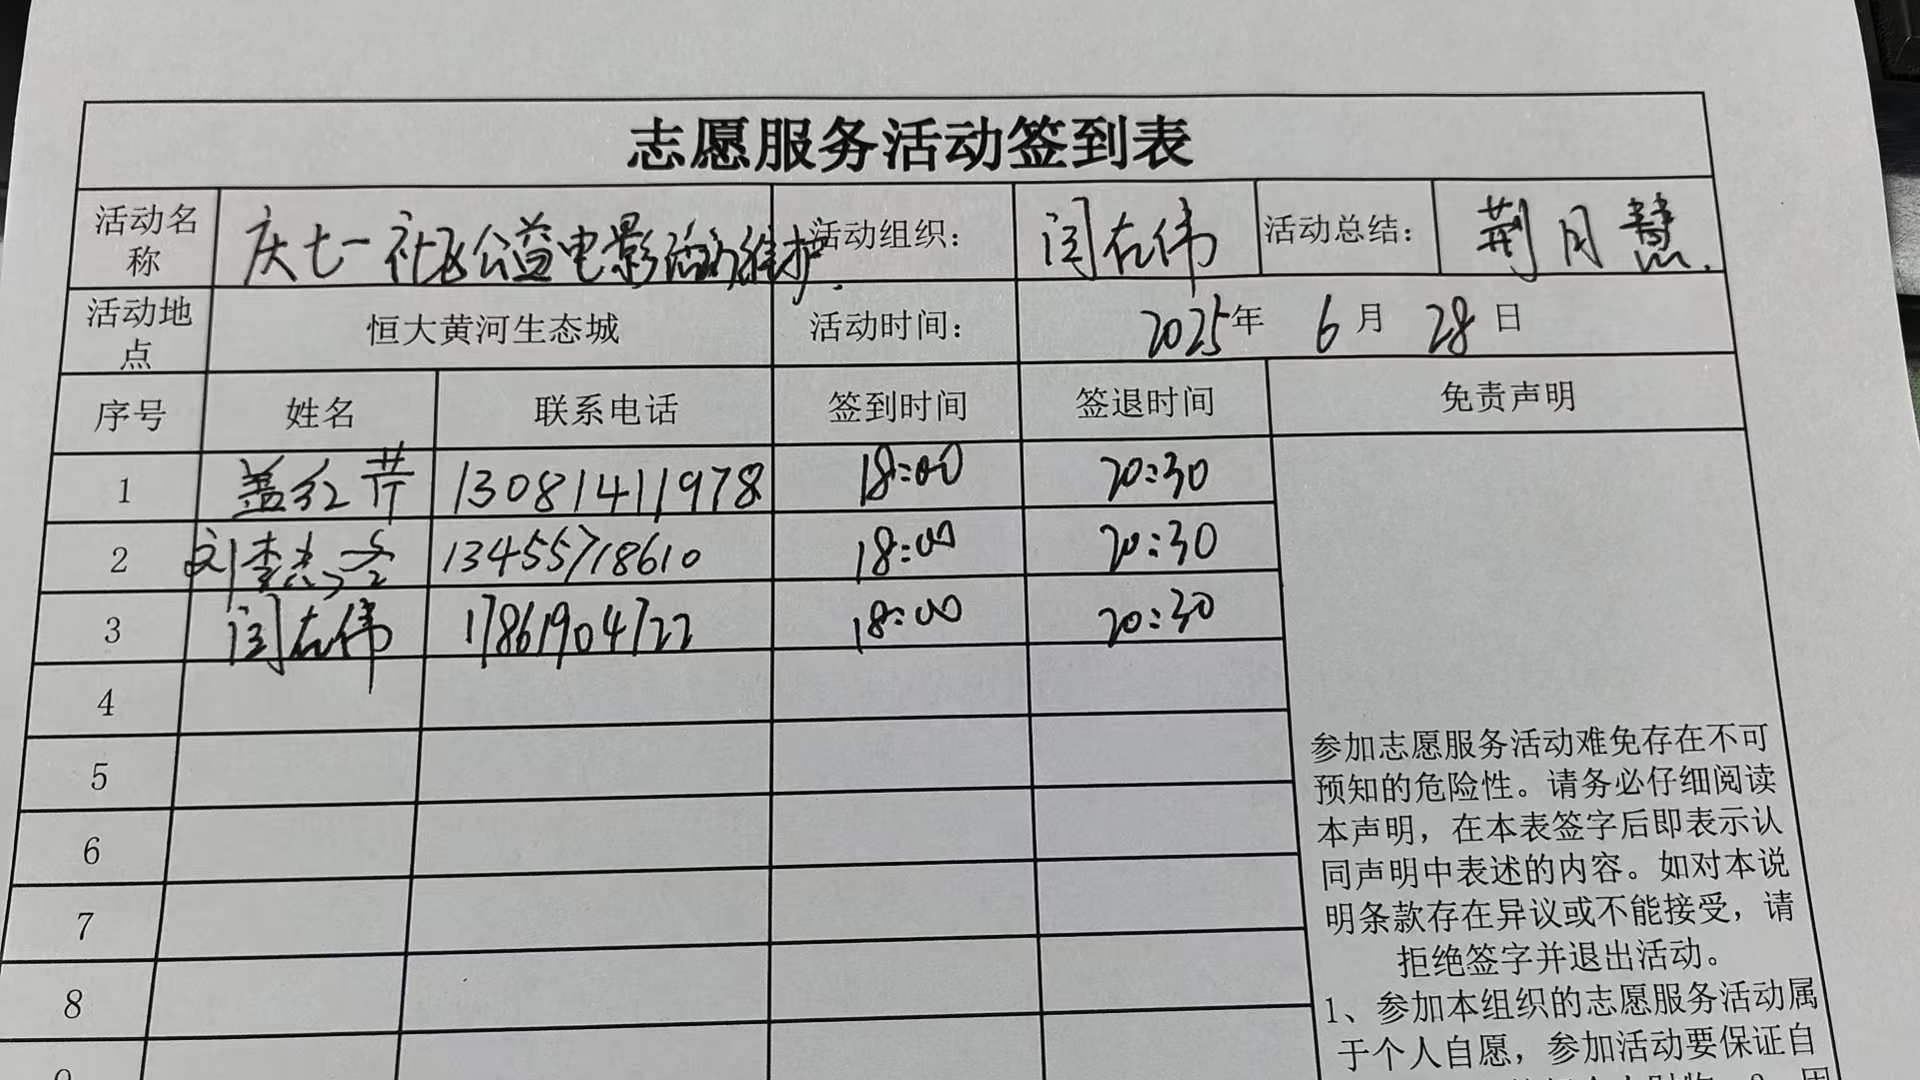 志愿服务活动签到表
活动名称 庆七一社区公益电影活动维护. 活动组织： 闫左伟 活动总结： 荆月慧.
活动地点 恒大黄河生态城 活动时间： 2025年 6月 28日
序号 姓名 联系电话 签到时间 签退时间 免责声明
1 盖红芹 13081411978 18:00 20:30
2 刘 13455718610 18:00 20:30
3 闫左伟 17861904722 18:00 20:30
4
5
6
7
8
参加志愿服务活动难免存在不可
预知的危险性。请务必仔细阅读
本声明，在本表签字后即表示认
同声明中表述的内容。如对本说
明条款存在异议或不能接受，请
拒绝签字并退出活动。
1、参加本组织的志愿服务活动属
于个人自愿，参加活动要保证自